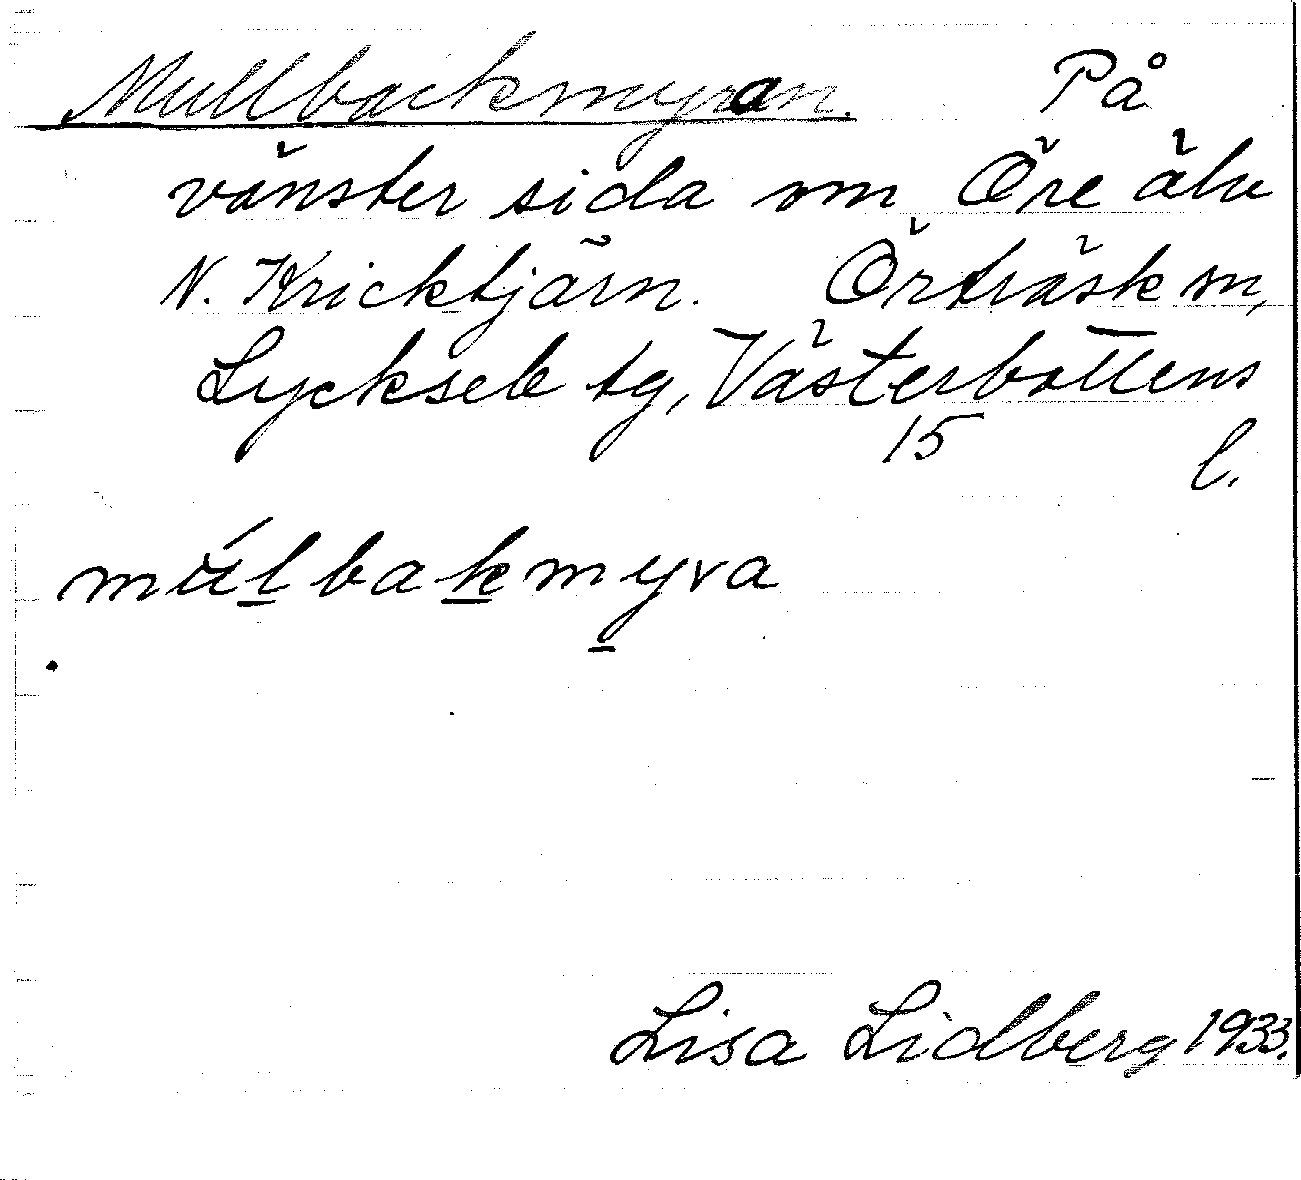 Mullbackmyran. På
vänster sida om Öre älv
N. Kricktjärn. Örträsk sn,
Lycksele tg, Västerbottens
15 l.
múlbakmyra
Lisa Lidberg 1933.